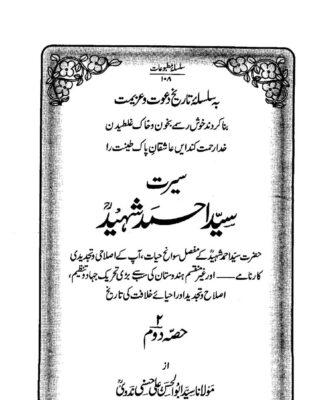 سلسلۂ مطبوعات
۱۰۸
بہ سلسلۂ تاریخ دعوت و عزیمت
بنا کردند خوش رسمے بخون و خاک غلطیدن
خدا رحمت کند ایں عاشقانِ پاک طینت را
سیرت
سید احمد شہیدؒ
حضرت سید احمد شہیدؒ کے مفصل سوانح حیات، آپ کے اصلاحی و تجدیدی
کارنامے ــــ اور غیر منقسم ہندوستان کی سب سے بڑی تحریک جہاد و تنظیم،
اصلاح و تجدید اور احیائے خلافت کی تاریخ
۲
حصہ دوم
از
مولانا سید ابوالحسن علی حسنی ندویؒ